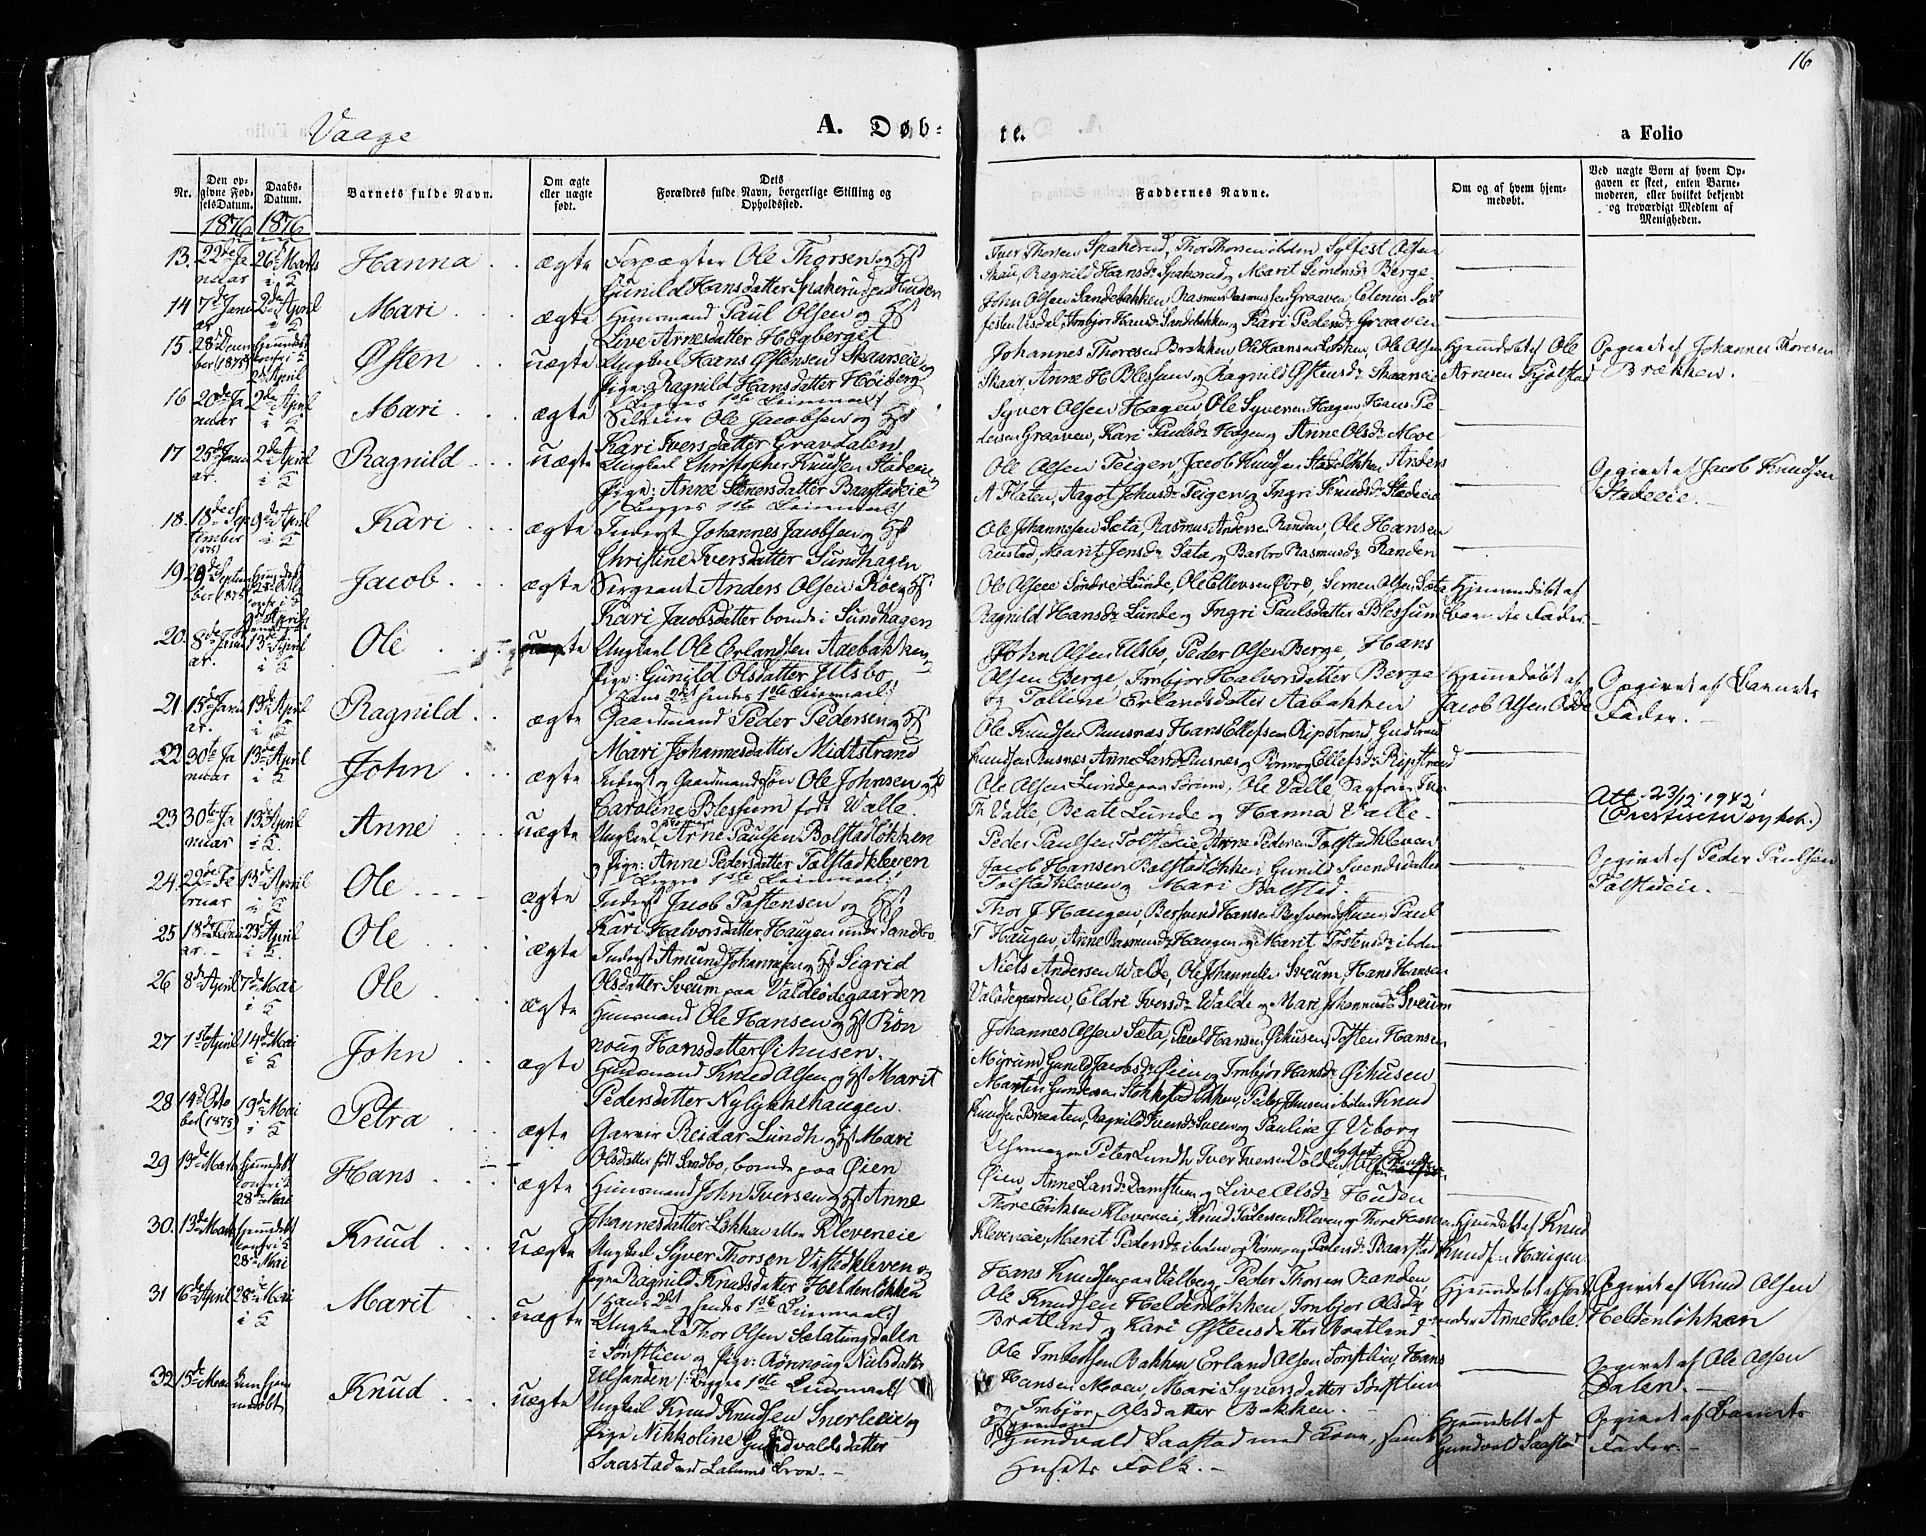 16
Vaage
A. Døb-
te.
a Folio
Nr.
Den op-
givne Fød-
selsDatum.
Daabs-
Datum.
Barnets fulde Navn.
Om ægte
eller uægte
født.
Dets
Forældres fulde Navn, borgerlige Stilling og
Opholdssted.
Faddernes Navne.
Om og af hvem hjem-
medøbt.
Ved uægte Børn af hvem Op-
gaven er skeet, enten Barne-
moderen, eller hvilket bekjendt
og troværdigt Medlem af
Menigheden.
1876 1876
13. 22de Ja
nuar
26de Marts
i K
Hanna
ægte
Forpagter Ole Thorsen og Hst
Gunild Hansdatter Spakerud paa Huden
Iver Thorsen Spakerud, Thor Thorsen ibden Sylfest Olsen
Ragnild Hansd: Spakerud og Marit Simensd: Berge.
14 7de Janu
ar
2den April
i K
Mari
ægte
Huusmand Paul Olsen og Hst
Live Arnesdatter Høgberget
John Olsen Sandebakken, Rasmus Rasmussen Graaven
Imbjør Hansd: Sandebakken og Kari Pedersd: Graaven
15 28de Decem
ber (1875)
Hjemmedøbt
2den April
Østen
uægte
Ungkarl Hans Østensen Skaareie og
Pige: Ragnild Hansdatter Høiberg
/ Begges 1ste Leiermaal /
Johannes Thoresen Brækken, Ole Hansen Løkken, Ole Olsen
Skaar, Anne H Blessum og Ragnild Østensd: Skaareie
Hjemmedøbt af Ole
Arnesen Kjølstad
Opgivet af Johannes Thoresen
Brækken.
16 20de Ja
nuar
2den April
i K
Mari
ægte
Ole Jacobsen og Hst
Kari Iversdatter Gravdalen
Syver Olsen Hagen, Ole Syversen Hagen, Hans Pe
dersen Graaven, Kari Paulsd: Hagen og Anne Olsd: Moe
17 25de Janu
ar.
2den April
i K
Ragnild
uægte
Ungkarl Christopher Knudsen Stadeeie og
Pige: Anne Stenersdatter Baarstadeie
/ Begges 1ste Leiermaal /
Ole Olsen Teigen, Jacob Knudsen Stadeløkken Anders
A Flaten, Aagot Johnsd: Teigen og Ingri Knudsd: Stadeeie
Opgivet af Jacob Knudsen
Stadeeie.
18. 18de Sep
tember
(1875)
9de April
i K
Kari
ægte
Inderst Johannes Jacobsen og Hst
Christine Iversdatter Sundhagen
Ole Johannesen Sæta, Rasmus Andersen Randen, Ole Hansen
Rustad, Marit Jensd: Sæta og Barbro Rasmusd: Randen
19 29de Septem
ber (1875)
Jacob
ægte
Sergeant Anders Olsen Røe og Hst
Kari Jacobsdatter boende i Sundhagen
Ole Olsen Søndre Lunde, Ole Ellevsen Øvre, Simen Olsen Sæta
Ragnild Hansd: Lunde og Ingri Paulsdatter Blessum
Hjemmedøbt af
Barnets Fader.
20. 8de Janu
ar.
13de April
i K
Ole
uægte
Ungkarl Ole Erlandsen Aaebakken og
Pige: Gunild Olsdatter Ulsbo
/ Hans 2det hendes 1ste Leiermaal /
John Olsen Ulsbo, Peder Olsen Berge, Hans
Olsen Berge Imbjør Halvorsdatter Berge
og Toline Erlandsdatter Aabakken
Hjemmedøbt af
Jacob Olsen Odde
Opgivet af Barnets
Fader.
21 15de Janu
ar.
13de April
i K
Ragnild
ægte
Gaardmand Peder Pedersen og Hst
Mari Johannesdatter Midtstrand
Ole Knudsen Ruusnæs Hans Ellefsen Ripstrand, Gudbrand
Knudsen Ruusnæs Anne Larsd: Ruusnæs og Rønnog Ellefsd: Ripstrand
22 30te Ja
nuar
13de April
i K
John
ægte
Inderst og Gaardmandssøn Ole Johnsen og Hst
Caroline Blessum født Walle.
Ole Olsen Lunde paa Sørum, Ole Valle Sagfører
Th Valle Beate Lunde og Hanna Valle.
Att. 23/12 1942
23 30te Ja
nuar
13de April
i K
Anne
uægte
Ungkarl Arne Paulsen Bolstadløkken
og Pige: Anne Pedersdatter Tolstadkleven
/ Begges 1ste Leiermaal /
Peder Paulsen Tolstadeie, Arne Pedersen Tolstadkleven
Jacob Hansen Bolstadløkken Gunild Svendsdatter
Tolstadkleven og Mari Bolstad.
Opgivet af Peder Paulsen
Tolstadeie.
24 22de Fe
bruar
13de April
i K
Ole
ægte
Inderst Jacob Tostensen og Hst
Kari Halvorsdatter Haugen under Sandbo
Thor J Haugen, Bersvend Hansen Bersvendstuen, Paul
T Haugen, Anne Rasmusd: Haugen og Marit Tostensd: ibden
25 18de Febru
ar.
23de April
i K
Ole
ægte
Inderst Amund Johannesen og Hst Sigrid
Olsdatter Sveum paa Valdeødegaarden
Niels Andersen Walde, Ole Johannesen Sveum, Hans Hansen
Valdeødegaarden, Eldri Iversd: Walde og Mari Johannesd: Sveum
26 8de April 7de Mai
i K
Ole
ægte
Huusmand Ole Hansen og Hst Røn
noug Hansdatter Øihusen.
Johannes Olsen Sæta, Paul Hansen Øihusen, Tosten Hansen
Gunild Jacobsd: Øien og Imbjør Hansd: Øihusen
27 1ste April 14de Mai
i K
John
ægte
Huusmand Knud Olsen og Hst Marit
Pedersdatter Nylykkehaugen.
Morten Gundersen Stokstadløkken, Peder Johnsen ibden Knud
Knudsen Braaten, Ragnild Iversd: Sveen og Pauline J Viborg
28 14de Octo
ber (1875)
19de Mai
i K
Petra
ægte
Garver Reidar Lundh og Hst Mari
Olsdatter født Sandbo, boende paa Øien
Uhrmager Peter Lundh Iver Iversen Volden
Øien, Anne Larsd: Damstuen og Live Olsd: Huden
29 19de Marts Hjemmedøbt
28de Mai
Hans
ægte
Huusmand John Iversen og Hst Anne
Johannesdatter Løkken eller Kleveneie
Thore Eriksen Kleveneie, Knud Pedersen Kleven og Thore Hansen
Kleveneie, Marit Pedersd: ibden og Rønnog Pedersd: Baarstad
Hjemmedøbt af Knud
Knudsen Haugen
30. 13de Marts Hjemmedøbt
28de Mai
Knud
uægte
Ungkarl Syver Thorsen Vistedkleven og
Pige Ragnild Knudsdatter Heldenløkken
/ Hans 2det og hendes 1ste Leiermaal /
Hans Knudsen paa Valberg, Peder Thorsen Randen
Ole Knudsen Heldenløkken, Imbjør Olsd:
Bratland og Kari Østensdatter Bratland
Hjemmedøbt af
Anne Hole.
Opgivet af Knud Olsen
Heldenløkken
31 16de April 28de Mai
i K
Marit
uægte
Ungkarl Thor Olsen Sælatungdalen
i Sørstlien og Pige: Rønnoug Nielsdatter
Ulsanden /: Begges 1ste Leiermaal /
Ole Imbertsen Bakken Erland Olsen Sørstlien, Hans
Hansen Moen, Mari Syversdatter Sørstlien
og Imbjør Olsdatter Bakken.
Opgivet af Ole Olsen
Dalen.
32 15de Mai kun hjem
medøbt
Knud
uægte
Ungkarl Knud Knudsen Snerleeie og
Pige Nikkoline Gundvaldsdatter
Saastad ved Lalums Broe.
Gundvald Saastad med Kone, samt
Husets Folk.
Hjemmedøbt af
Gundvald Saastad
Opgivet af Barnets
Fader.